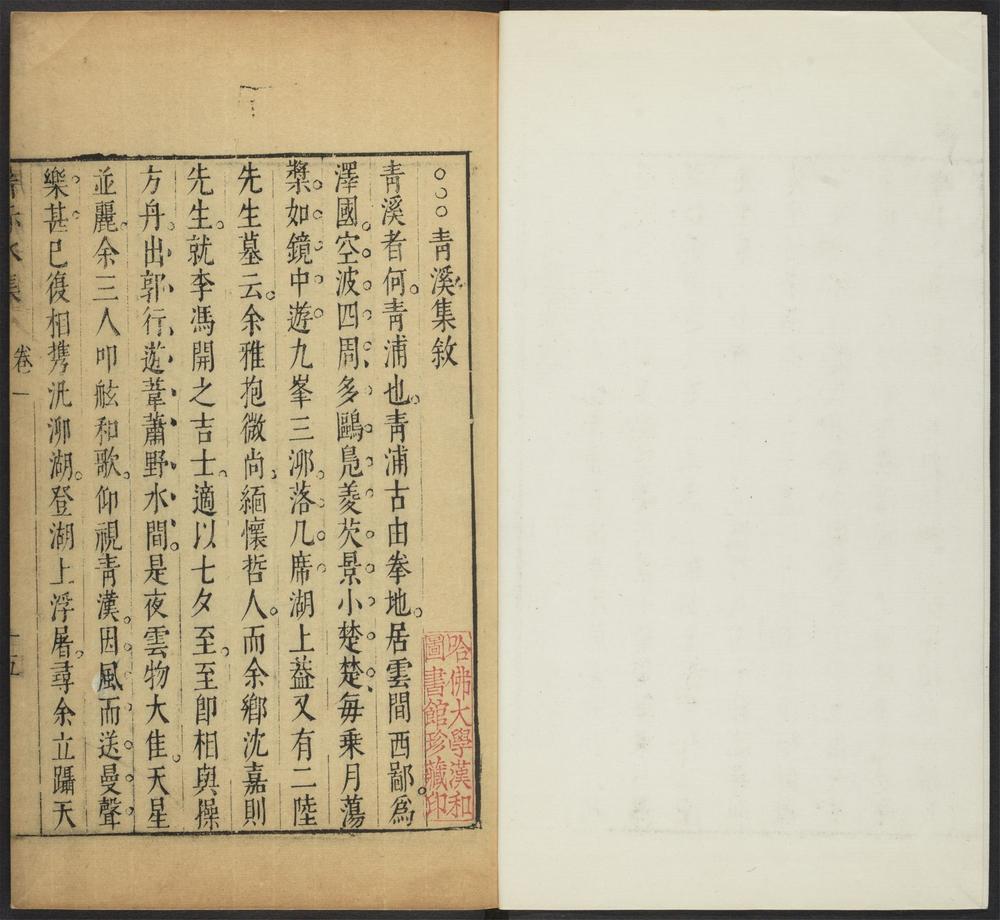 青溪集敘
青溪者何青浦也青浦古由拳地居雲間西鄙爲
澤國空波四周多鷗鳧菱芡景小楚楚每乗月蕩
槳如鏡中遊九峯三泖落几席湖上益又有二陸
先生墓云余雅抱微尚緬懷哲人而余鄉沈嘉則
先生就李馮開之吉士適以七夕至至即相與操
方舟出郭行遊葦蕭野水間是夜雲物大佳天星
並麗余三人叩舷和歌仰視青漢因風而送曼聲
樂甚已復相携汎泖湖登湖上浮屠尋余立躡天
卷一
十五
哈佛大學漢和
圖書館珍藏印